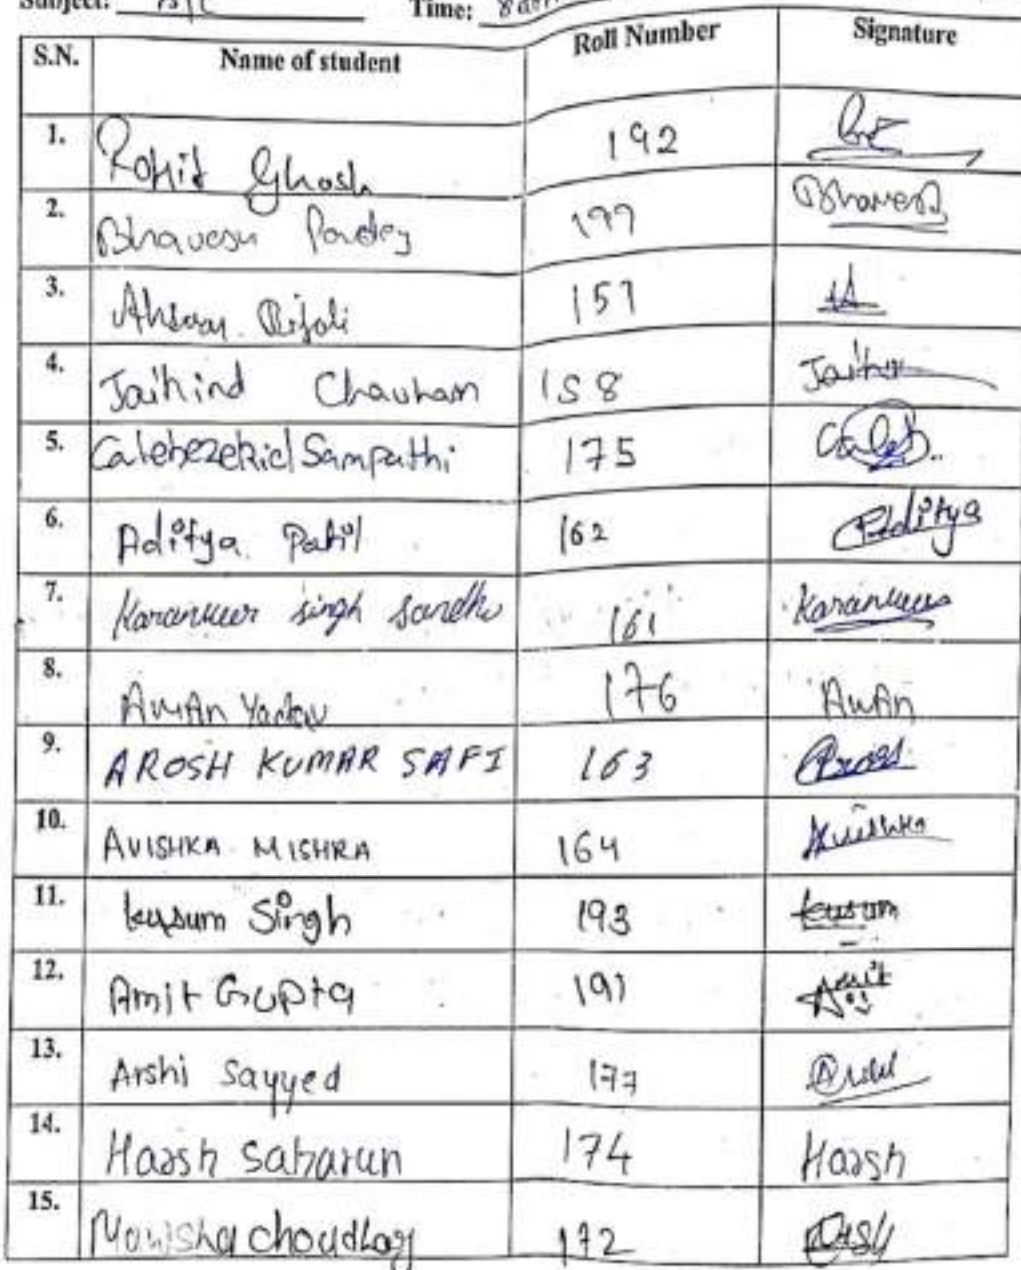 Subject: Time: 8 am
S.N. Name of student Roll Number Signature
1. Rohit Ghosh 192
2. Bhavesh Pandey 199 Bhavesh
3. 157
4. Jaihind Chauhan 158 Jaihind
5. Calebezekiel Sampathi 175 Caleb
6. Aditya Patil 162 Aditya
7. Karanveer singh sandhu 161 Karanveer
8. Aman Yadav 176 Aman
9. AROSH KUMAR SAFI 163
10. AVISHKA MISHRA 164 Avishka
11. kusum Singh 193 kusum
12. Amit Gupta 191 Amit
13. Arshi Sayyed 177
14. Harsh Saharun 174 Harsh
15. Manisha Choudhary 172